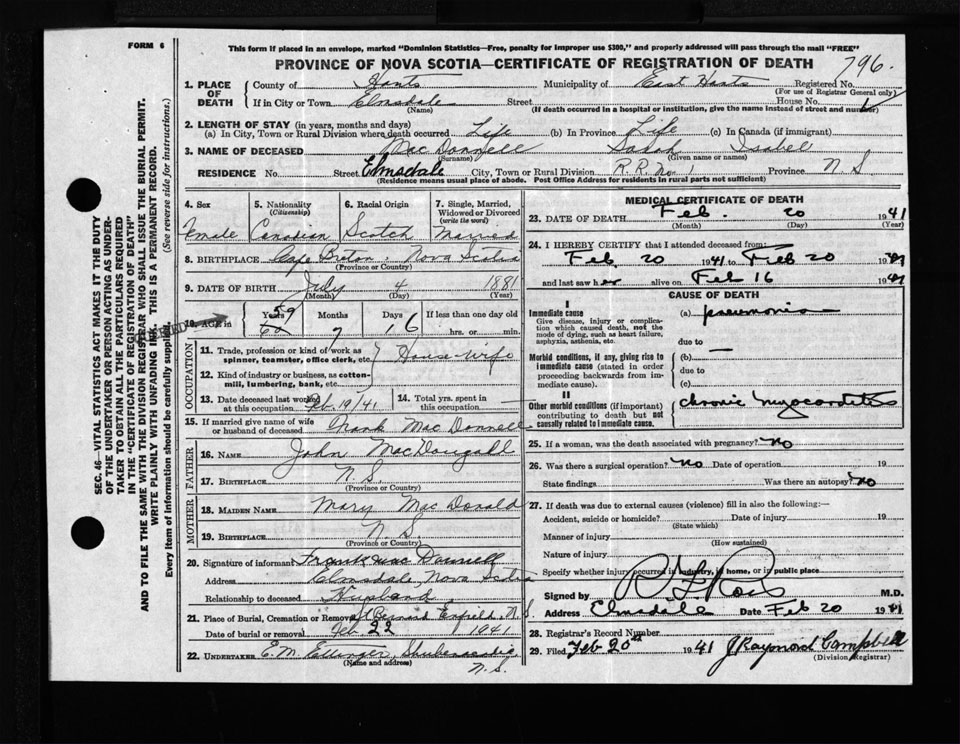 FORM 6
This form if placed in an envelope, marked "Dominion Statistics—Free, penalty for improper use $300," and properly addressed will pass through the mail "FREE"
PROVINCE OF NOVA SCOTIA—CERTIFICATE OF REGISTRATION OF DEATH
796.
1. PLACE OF DEATH
County of Hants Municipality of East Hants Registered No.
(For use of Registrar General only)
If in City or Town Elmsdale Street House No.
(Name) (If death occurred in a hospital or institution, give the name instead of street and number)
2. LENGTH OF STAY (in years, months and days)
(a) In City, Town or Rural Division where death occurred Life (b) In Province Life (c) In Canada (if immigrant)
3. NAME OF DECEASED MacDonnell Sarah Isabel
(Surname) (Given name or names)
RESIDENCE No. Street Elmsdale City, Town or Rural Division R.R. No. 1 Province N S
(Residence means usual place of abode. Post Office Address for residents in rural parts not sufficient)
4. Sex Female
5. Nationality (Citizenship) Canadian
6. Racial Origin Scotch
7. Single, Married, Widowed or Divorced (write the word) Married
8. BIRTHPLACE Cape Breton. Nova Scotia
(Province or Country)
9. DATE OF BIRTH July 4 1881
(Month) (Day) (Year)
10. AGE in Years 59 Months 7 Days 16 If less than one day old
hrs. or min.
OCCUPATION
11. Trade, profession or kind of work as spinner, teamster, office clerk, etc. House-wife
12. Kind of industry or business, as cotton-mill, lumbering, bank, etc.
13. Date deceased last worked at this occupation Feb. 19/41
14. Total yrs. spent in this occupation
15. If married give name of wife or husband of deceased Frank MacDonnell
FATHER
16. NAME John MacDougall
17. BIRTHPLACE N.S.
(Province or Country)
MOTHER
18. MAIDEN NAME Mary MacDonald
19. BIRTHPLACE N.S.
(Province or Country)
20. Signature of informant Frank Mac Donnell
Address Elmsdale, Nova Scotia
Relationship to deceased Husband
21. Place of Burial, Cremation or Removal St Bernard Enfield, N.S.
Date of burial or removal Feb 22 1941
22. UNDERTAKER E.M. Ettinger, Shubenacadie, N.S.
(Name and address)
MEDICAL CERTIFICATE OF DEATH
23. DATE OF DEATH Feb. 20 1941
(Month) (Day) (Year)
24. I HEREBY CERTIFY that I attended deceased from:
Feb 20 1941 to Feb 20 1941
and last saw her alive on Feb 16 1941
CAUSE OF DEATH
I
Immediate cause
Give disease, injury or complication which caused death, not the mode of dying, such as heart failure, asphyxia, asthenia, etc.
(a) pneumonia
due to
Morbid conditions, if any, giving rise to immediate cause (stated in order proceeding backwards from immediate cause).
(b) —
due to
(c)
II
Other morbid conditions (if important) contributing to death but not causally related to immediate cause.
chronic myocarditis
25. If a woman, was the death associated with pregnancy? No
26. Was there a surgical operation? No Date of operation 19
State findings Was there an autopsy? No
27. If death was due to external causes (violence) fill in also the following:—
Accident, suicide or homicide? Date of injury 19
(State which)
Manner of injury
(How sustained)
Nature of injury
Specify whether injury occurred in industry, in home, or in public place
Signed by M.D.
Address Elmsdale Date Feb 20 1941
28. Registrar's Record Number
29. Filed Feb 20th 1941 J Raymond Campbell
(Division Registrar)
SEC. 46—VITAL STATISTICS ACT MAKES IT THE DUTY
OF THE UNDERTAKER OR PERSON ACTING AS UNDER-
TAKER TO OBTAIN ALL THE PARTICULARS REQUIRED
IN THE "CERTIFICATE OF REGISTRATION OF DEATH"
AND TO FILE THE SAME WITH THE DIVISION REGISTRAR WHO SHALL ISSUE THE BURIAL PERMIT.
WRITE PLAINLY WITH UNFADING INK. THIS IS A PERMANENT RECORD.
Every item of information should be carefully supplied. (See reverse side for instructions.)